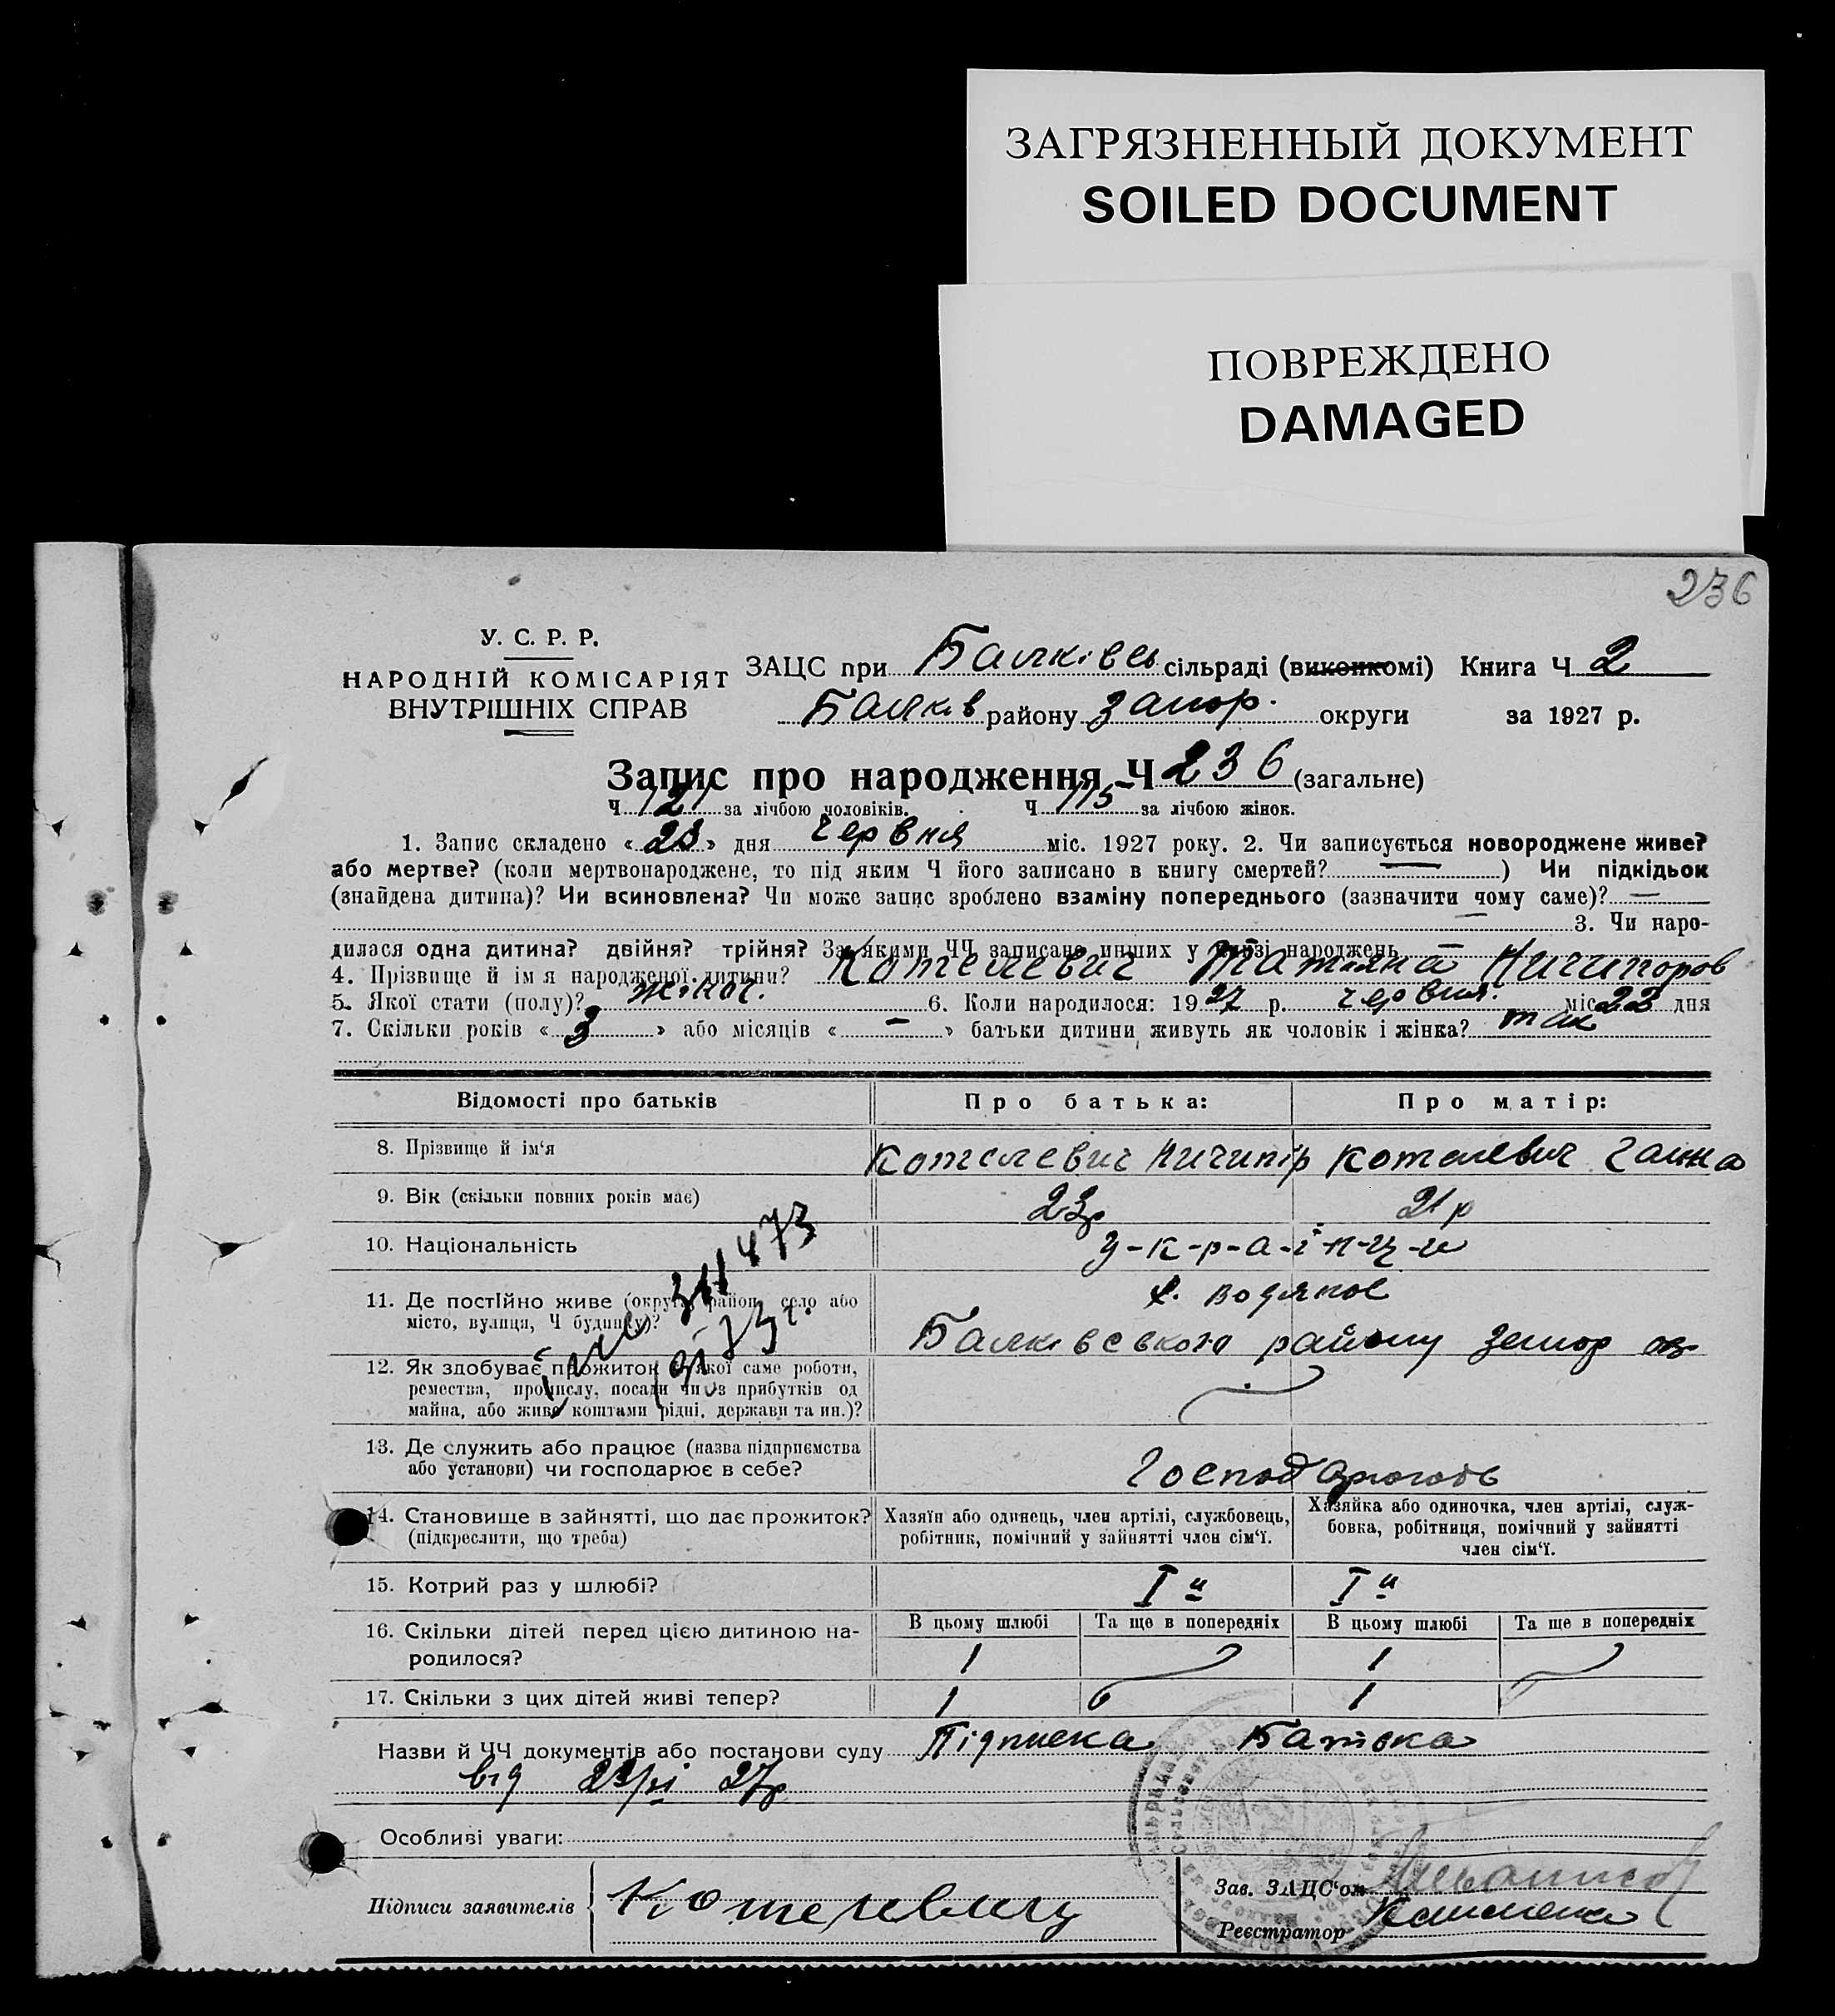 ЗАГРЯЗНЕННЫЙ ДОКУМЕНТ
SOILED DOCUMENT
ПОВРЕЖДЕНО
DAMAGED
236
У. С. Р. Р.
НАРОДНІЙ КОМІСАРІЯТ
ВНУТРІШНІХ СПРАВ
ЗАЦС при Балківсь сільраді (виконкомі) Книга Ч 2
Балків району Запор. округи за 1927 р.
Запис про народження Ч 236 (загальне)
Ч 121 за лічбою чоловіків. Ч 115 за лічбою жінок.
1. Запис складено « 23 » дня червня міс. 1927 року. 2. Чи записується новороджене живе?
або мертве? (коли мертвонароджене, то під яким Ч його записано в книгу смертей? — ) Чи підкідьок
(знайдена дитина)? Чи всиновлена? Чи може запис зроблено взаміну попереднього (зазначити чому саме)? —
— 3. Чи наро-
дилася одна дитина? двійня? трійня? За якими ЧЧ записано инших у книзі народжень —
4. Прізвище й імя народженої дитини? Котелевич Татяна Ничипоров
5. Якої стати (полу)? жіноч. 6. Коли народилося: 1927 р. червня. міс 22 дня
7. Скільки років « 3 » або місяців « — » батьки дитини живуть як чоловік і жінка? так
Відомості про батьків Про батька: Про матір:
8. Прізвище й ім‘я Котелевич Ничипір Котелевич Ганна
9. Вік (скільки повних років має) 23р 21р
10. Національність у-к-р-а-ї-н-ц-и
11. Де постійно живе (округа, район, село або
місто, вулиця, Ч будинку)?
х. Водяное
Балківського району Запор ок
12. Як здобуває прожиток якої саме роботи,
ремества, промислу, посади чи з прибутків од
майна, або живе коштами рідні, держави та ин.)?
13. Де служить або працює (назва підприємства
або установи) чи господарює в себе?
Господарюють
14. Становище в зайнятті, що дає прожиток?
(підкреслити, що треба)
Хазяїн або одинець, член артілі, службовець,
робітник, помічний у зайнятті член сім‘ї.
Хазяйка або одиночка, член артілі, служ-
бовка, робітниця, помічний у зайнятті
член сім‘ї.
15. Котрий раз у шлюбі? I й I й
В цьому шлюбі Та ще в попередніх В цьому шлюбі Та ще в попередніх
16. Скільки дітей перед цією дитиною на-
родилося?
1 1
17. Скільки з цих дітей живі тепер? 1 1
Назви й ЧЧ документів або постанови суду Підписка Батька
від 23/VI 27р
Особливі уваги:
Підписи заявителів Котелевич
Зав. ЗАЦС‘ом
Реєстратор